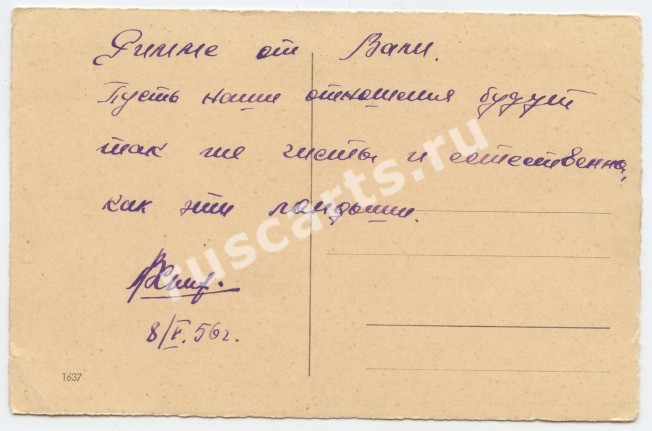 Римме от Вали.
Пусть наши отношения будут
так же чисты и естественны,
как эти ландыши.
8/V.56г.
1637
ruscarts.ru